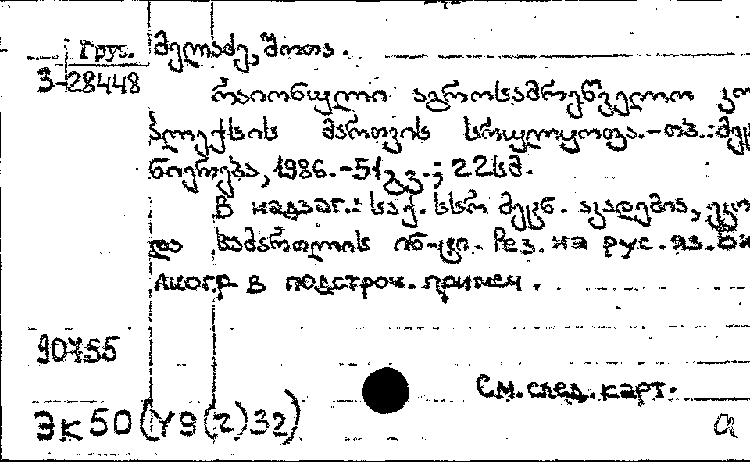 Груз. მელაძე, შოთა.
3-28448
რაიონული აგროსამრეწველო კო
პლექსის მართვის სრულყოფა.-თბ.:მეც
ნიერება, 1986.-51გვ.; 22სმ.
В надзаг.: საქ. სსრ მეცნ. აკადემია, ეკო
და სამართლის ინ-ტი. Рез. на рус. яз. Би
лиогр в подстроч. примеч.
90755
См. след. карт.
ЭК 50 (У9(2)32)
а